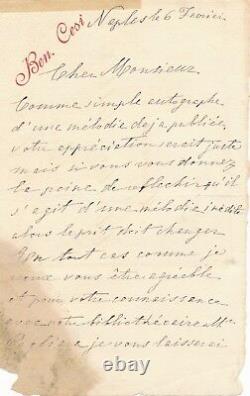 Ben. Cesi
Naples le 6 Fevrier
Cher Monsieur
Comme simple autographe
d'une mélodie deja publiée
votre appréciation serait juste
mais si vous vous donnez
la peine de reflechir qu'il
s'agit d'une mélodie inédite
alors le prix doit changer
En tout cas comme je
veux vous être agréable
et pour votre connaissance
avec votre bibliothécaire Mr
je vous laisserai